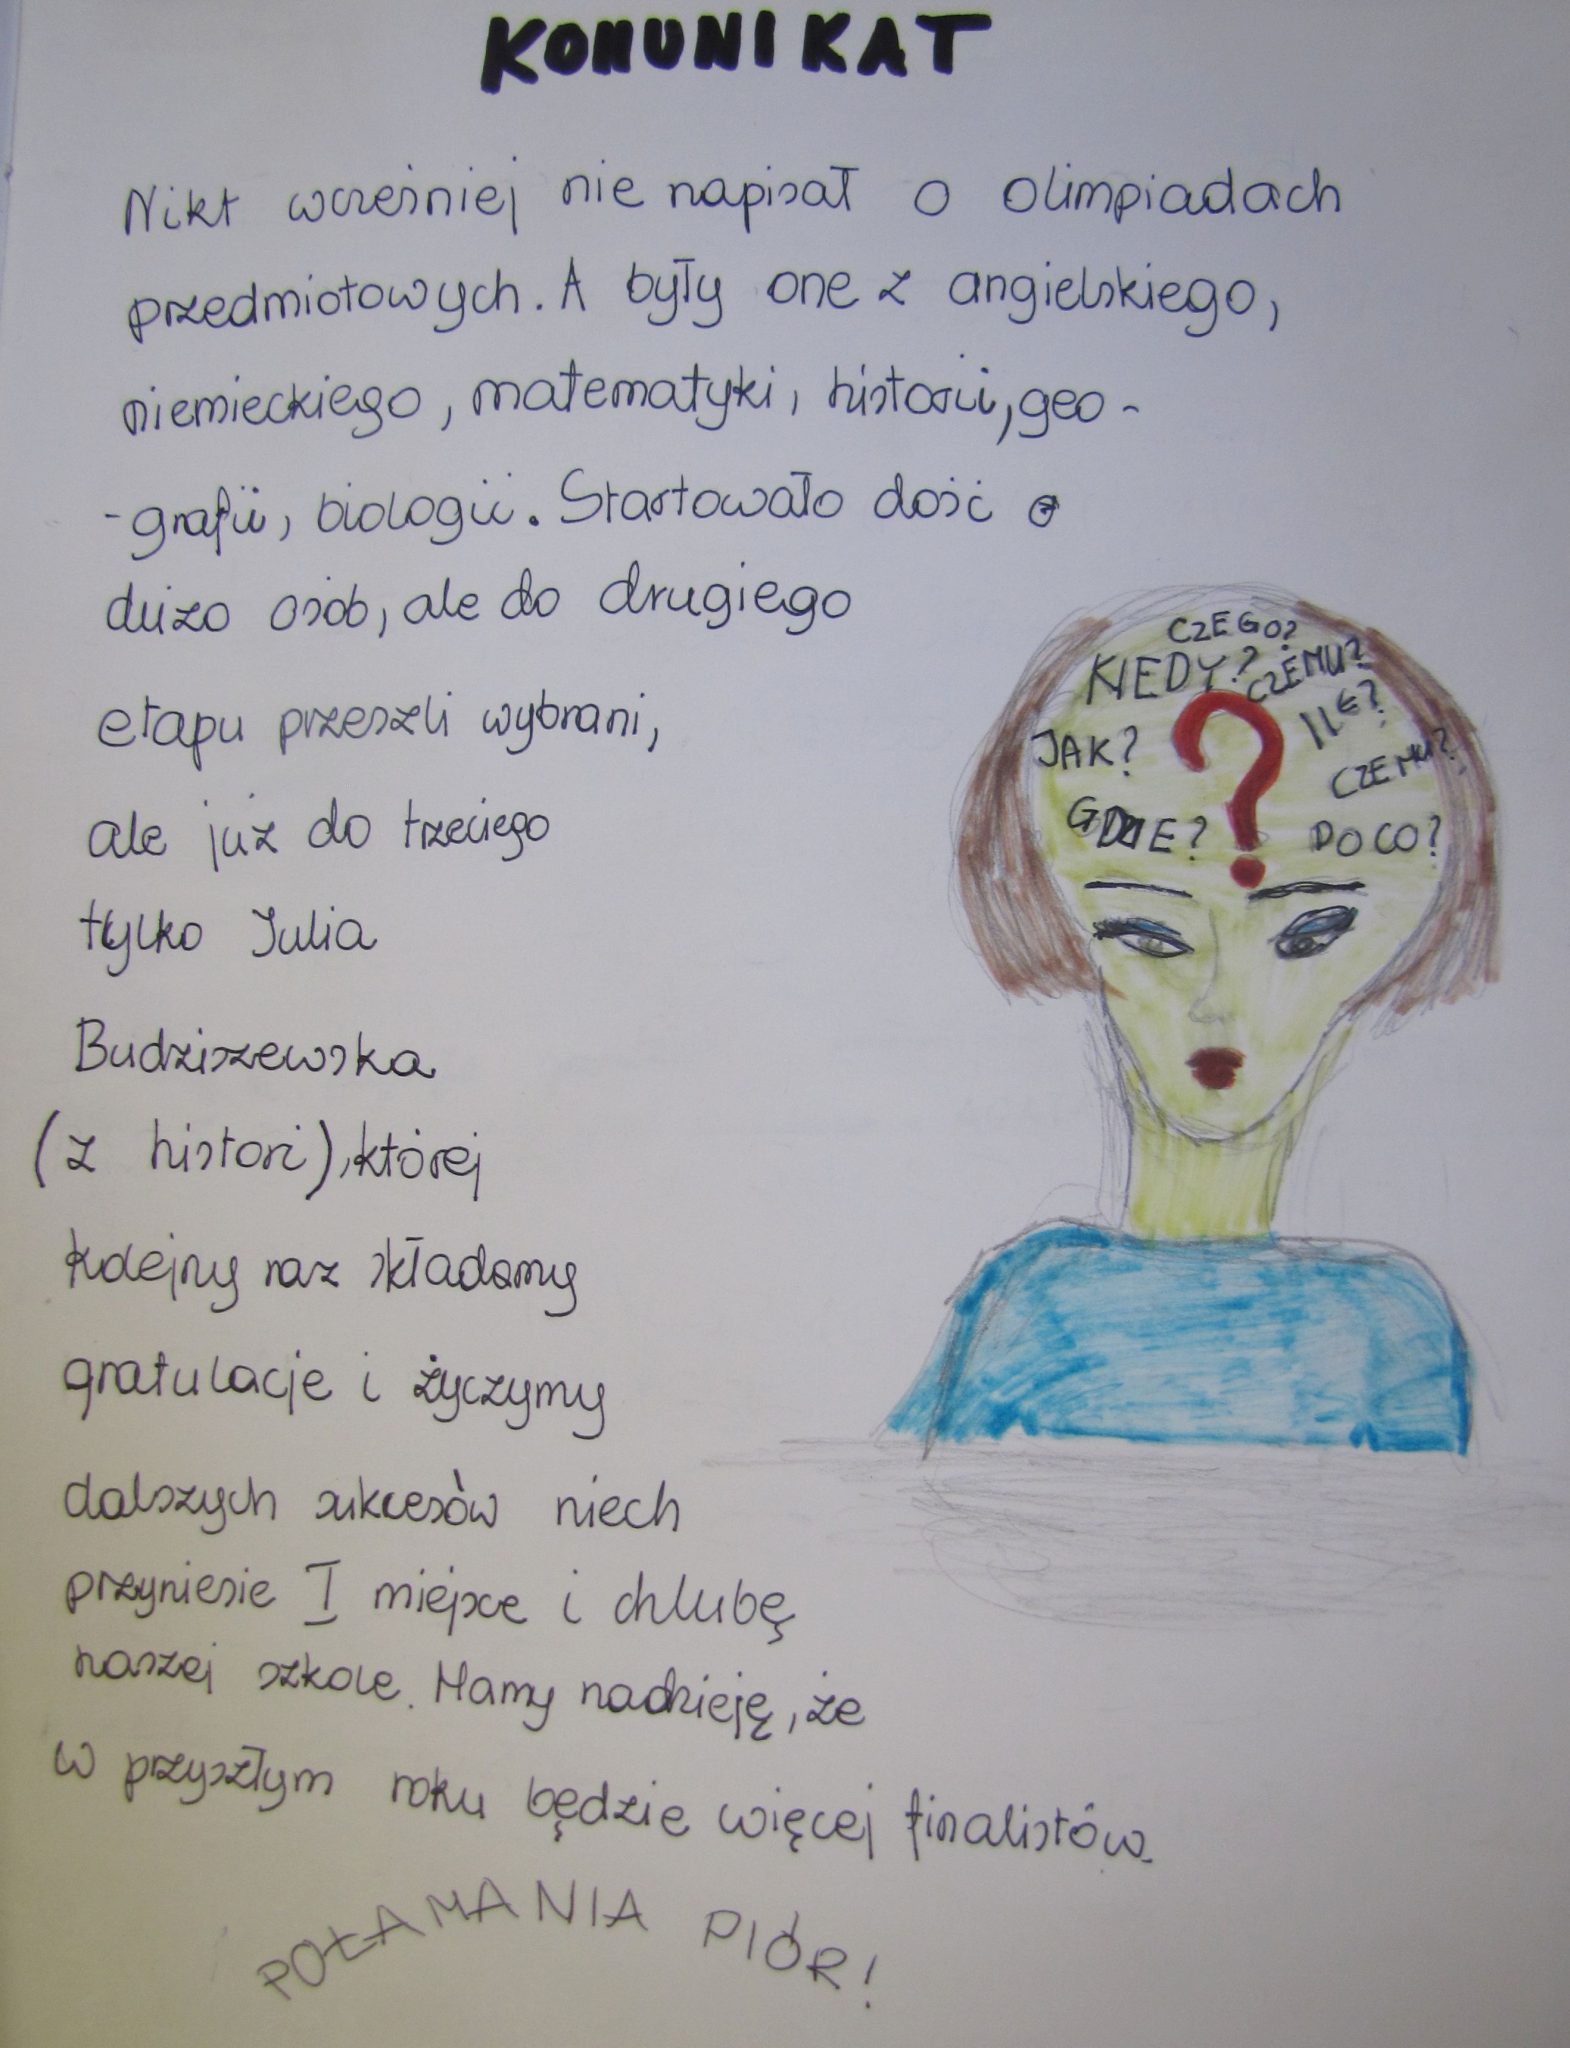 KOMUNIKAT
Nikt wcześniej nie napisał o olimpiadach
przedmiotowych. A były one z angielskiego,
niemieckiego, matematyki, historii, geo-
-grafii, biologii. Startowało dość
dużo osób, ale do drugiego
etapu przeszli wybrani,
ale już do trzeciego
tylko Julia
Budziszewska
(z histori), której
kolejny raz składamy
gratulacje i życzymy
dalszych sukcesów niech
przyniesie I miejsce i chlubę
naszej szkole. Mamy nadzieję, że
w przyszłym roku będzie więcej finalistów.
POŁAMANIA PIÓR!
CZEGO?
KIEDY?
CZEMU?
ILE?
JAK?
CZEMU?
GDZIE?
PO CO?